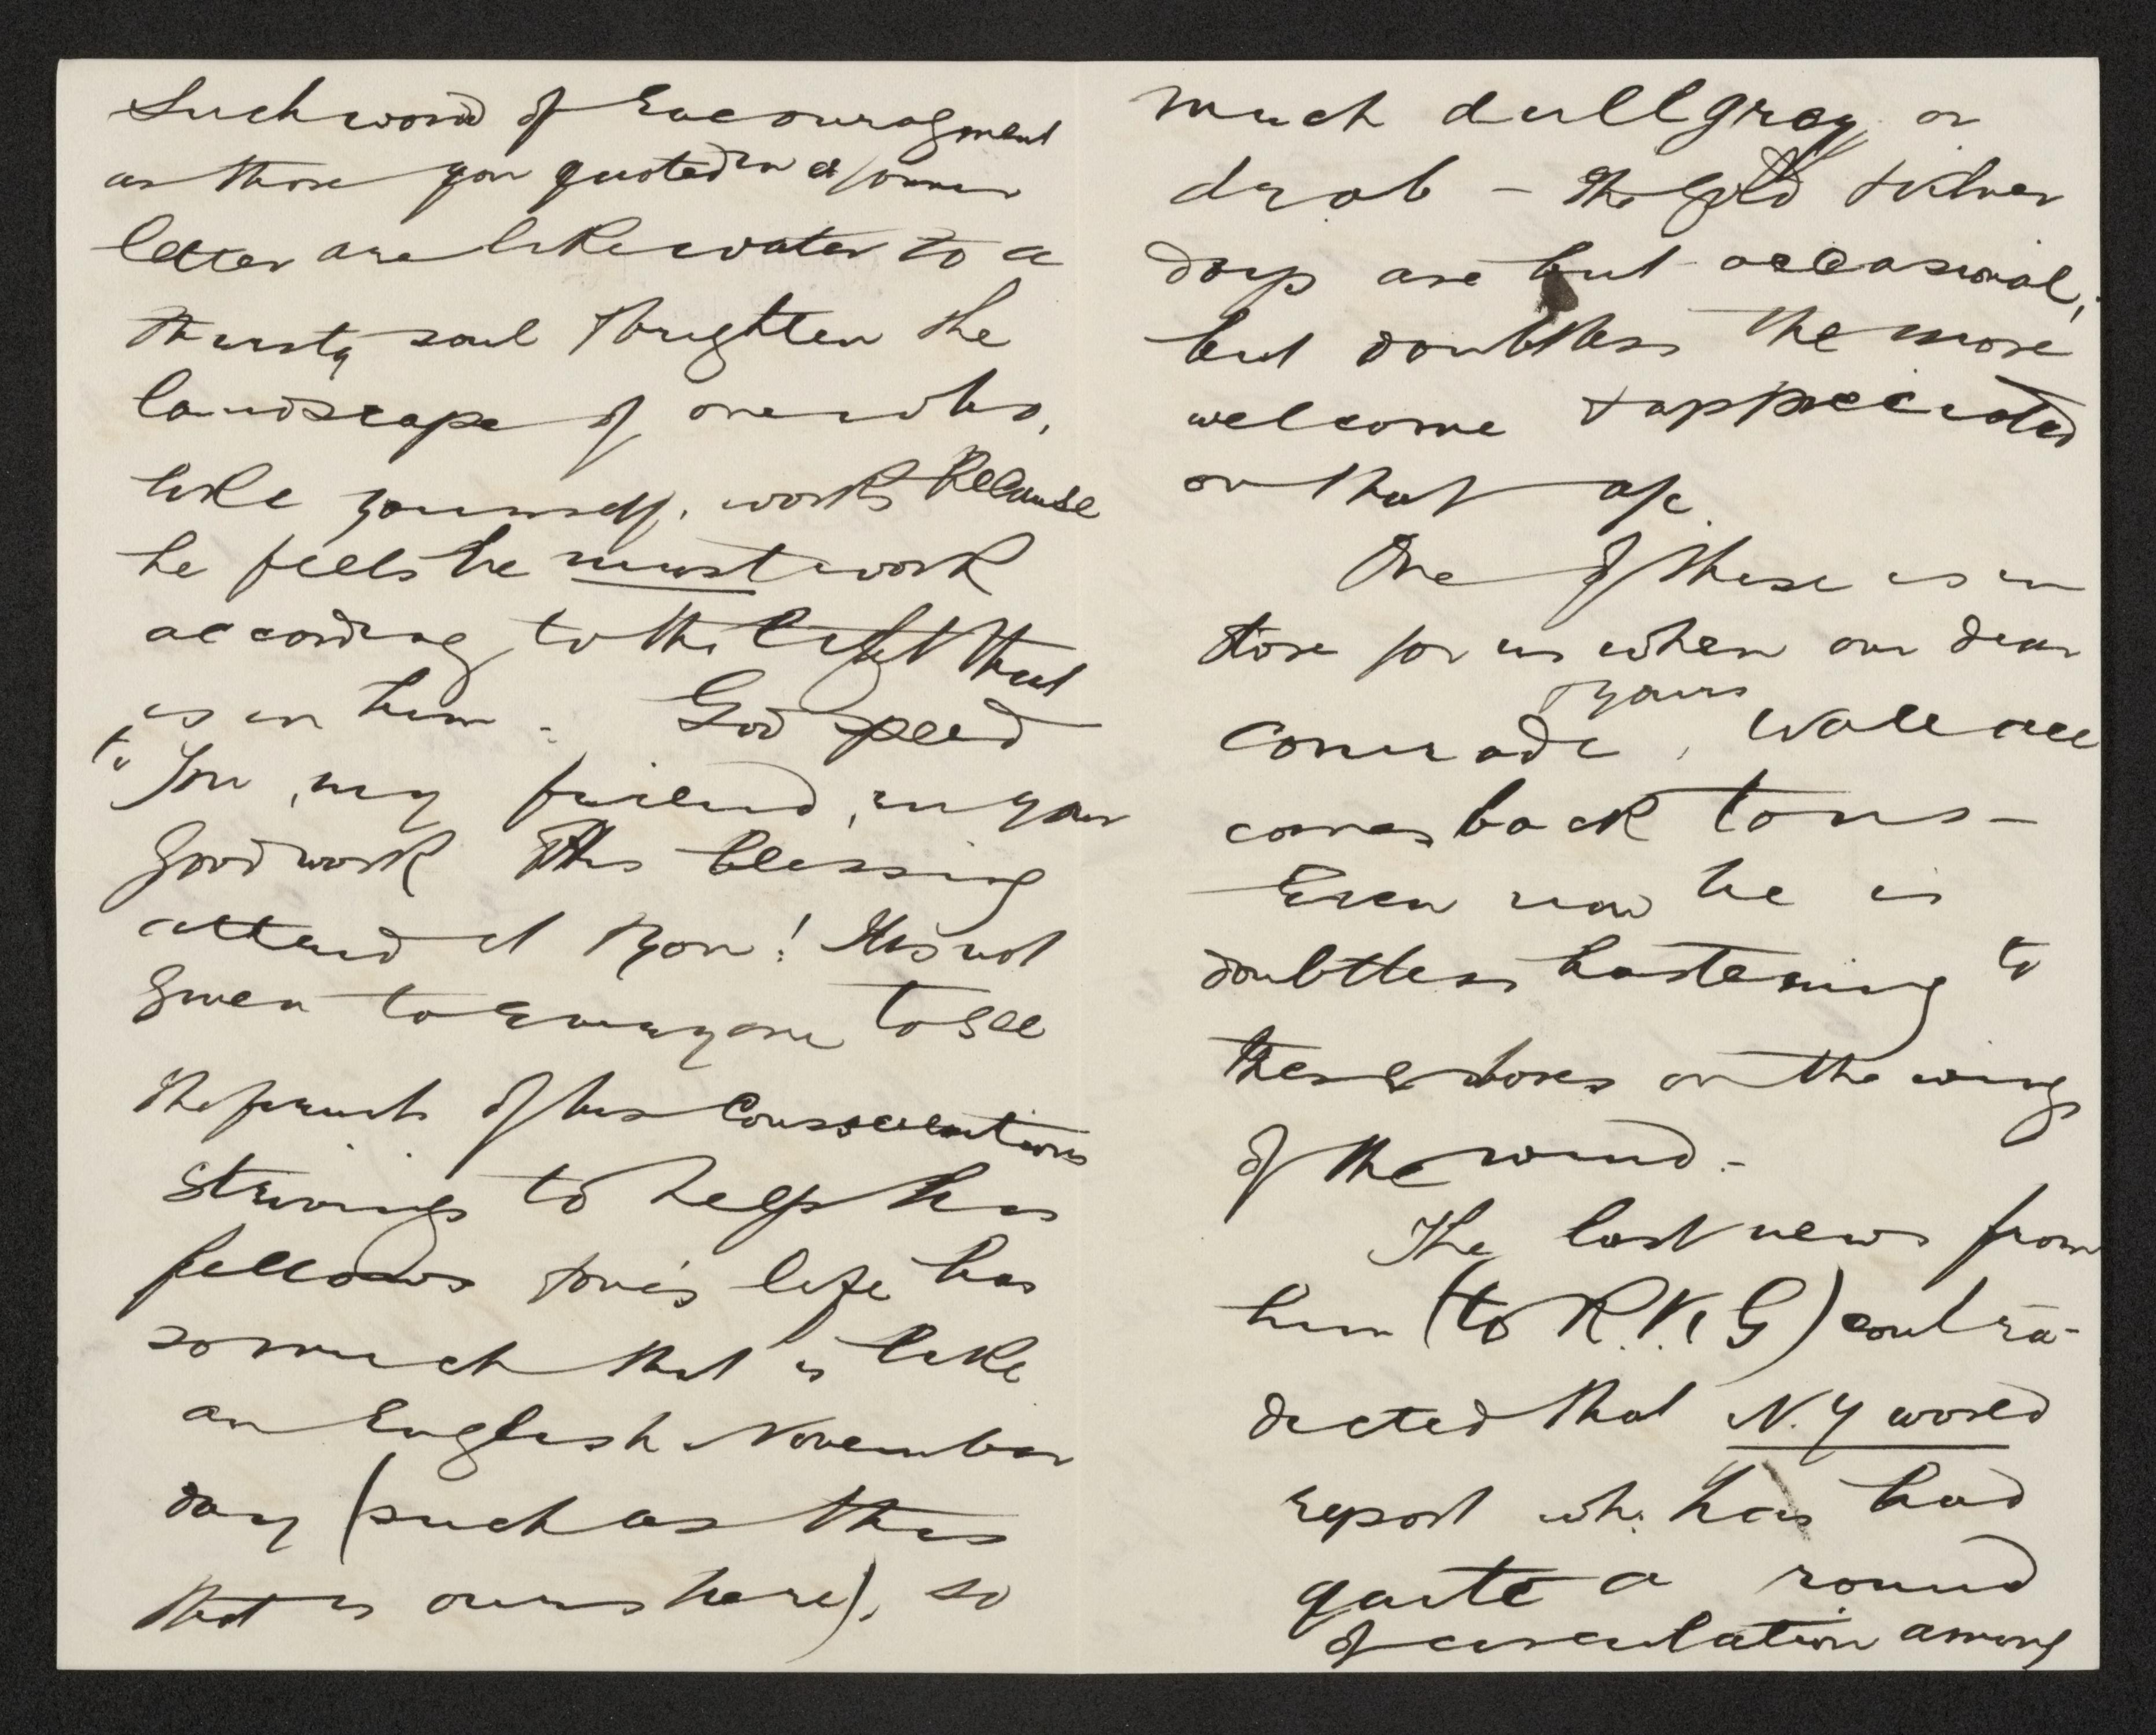 Such word of Encouragment
as those you quoted in a former
letter are like water to a
thirsty soul & brighten the
landscape of one who,
like yourself, works because
he feels he must work
according to the light that
is in him - God speed
to You, my friend, in your
good work & His blessing
attend it & you! It is not
given to everyone to see
the fruits of his conscientious
strivings to help his
fellows & one's life has
so much that is like
an English November
day (such as this
that is ours here), so
much dull gray or
drab - the gold & silver
days are but occasional,
but doubtless the more
welcome & appreciated
on that a/c.
One of these is in
store for us when our dear
comrade, & yours Wallace
comes back to us -
Even now he is
doubtless hastening to
these shores on the wings
of the wind. -
The last news from
him (to R.K.G) contra-
dicted that N.Y World
report wh. has had
quite a round
of circulation among